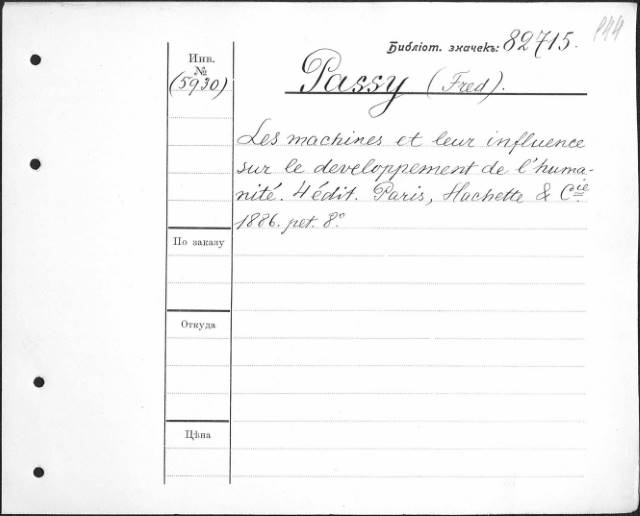 Библіот. значекъ: 82715.
Инв.
№
(5930)
Passy (Fred).
Les machines et leur influence
sur le developpement de l'huma-
nité. 4 édit. Paris, Hachette & Cie
1886. pet. 8°.
По заказу
Откуда
Цѣна